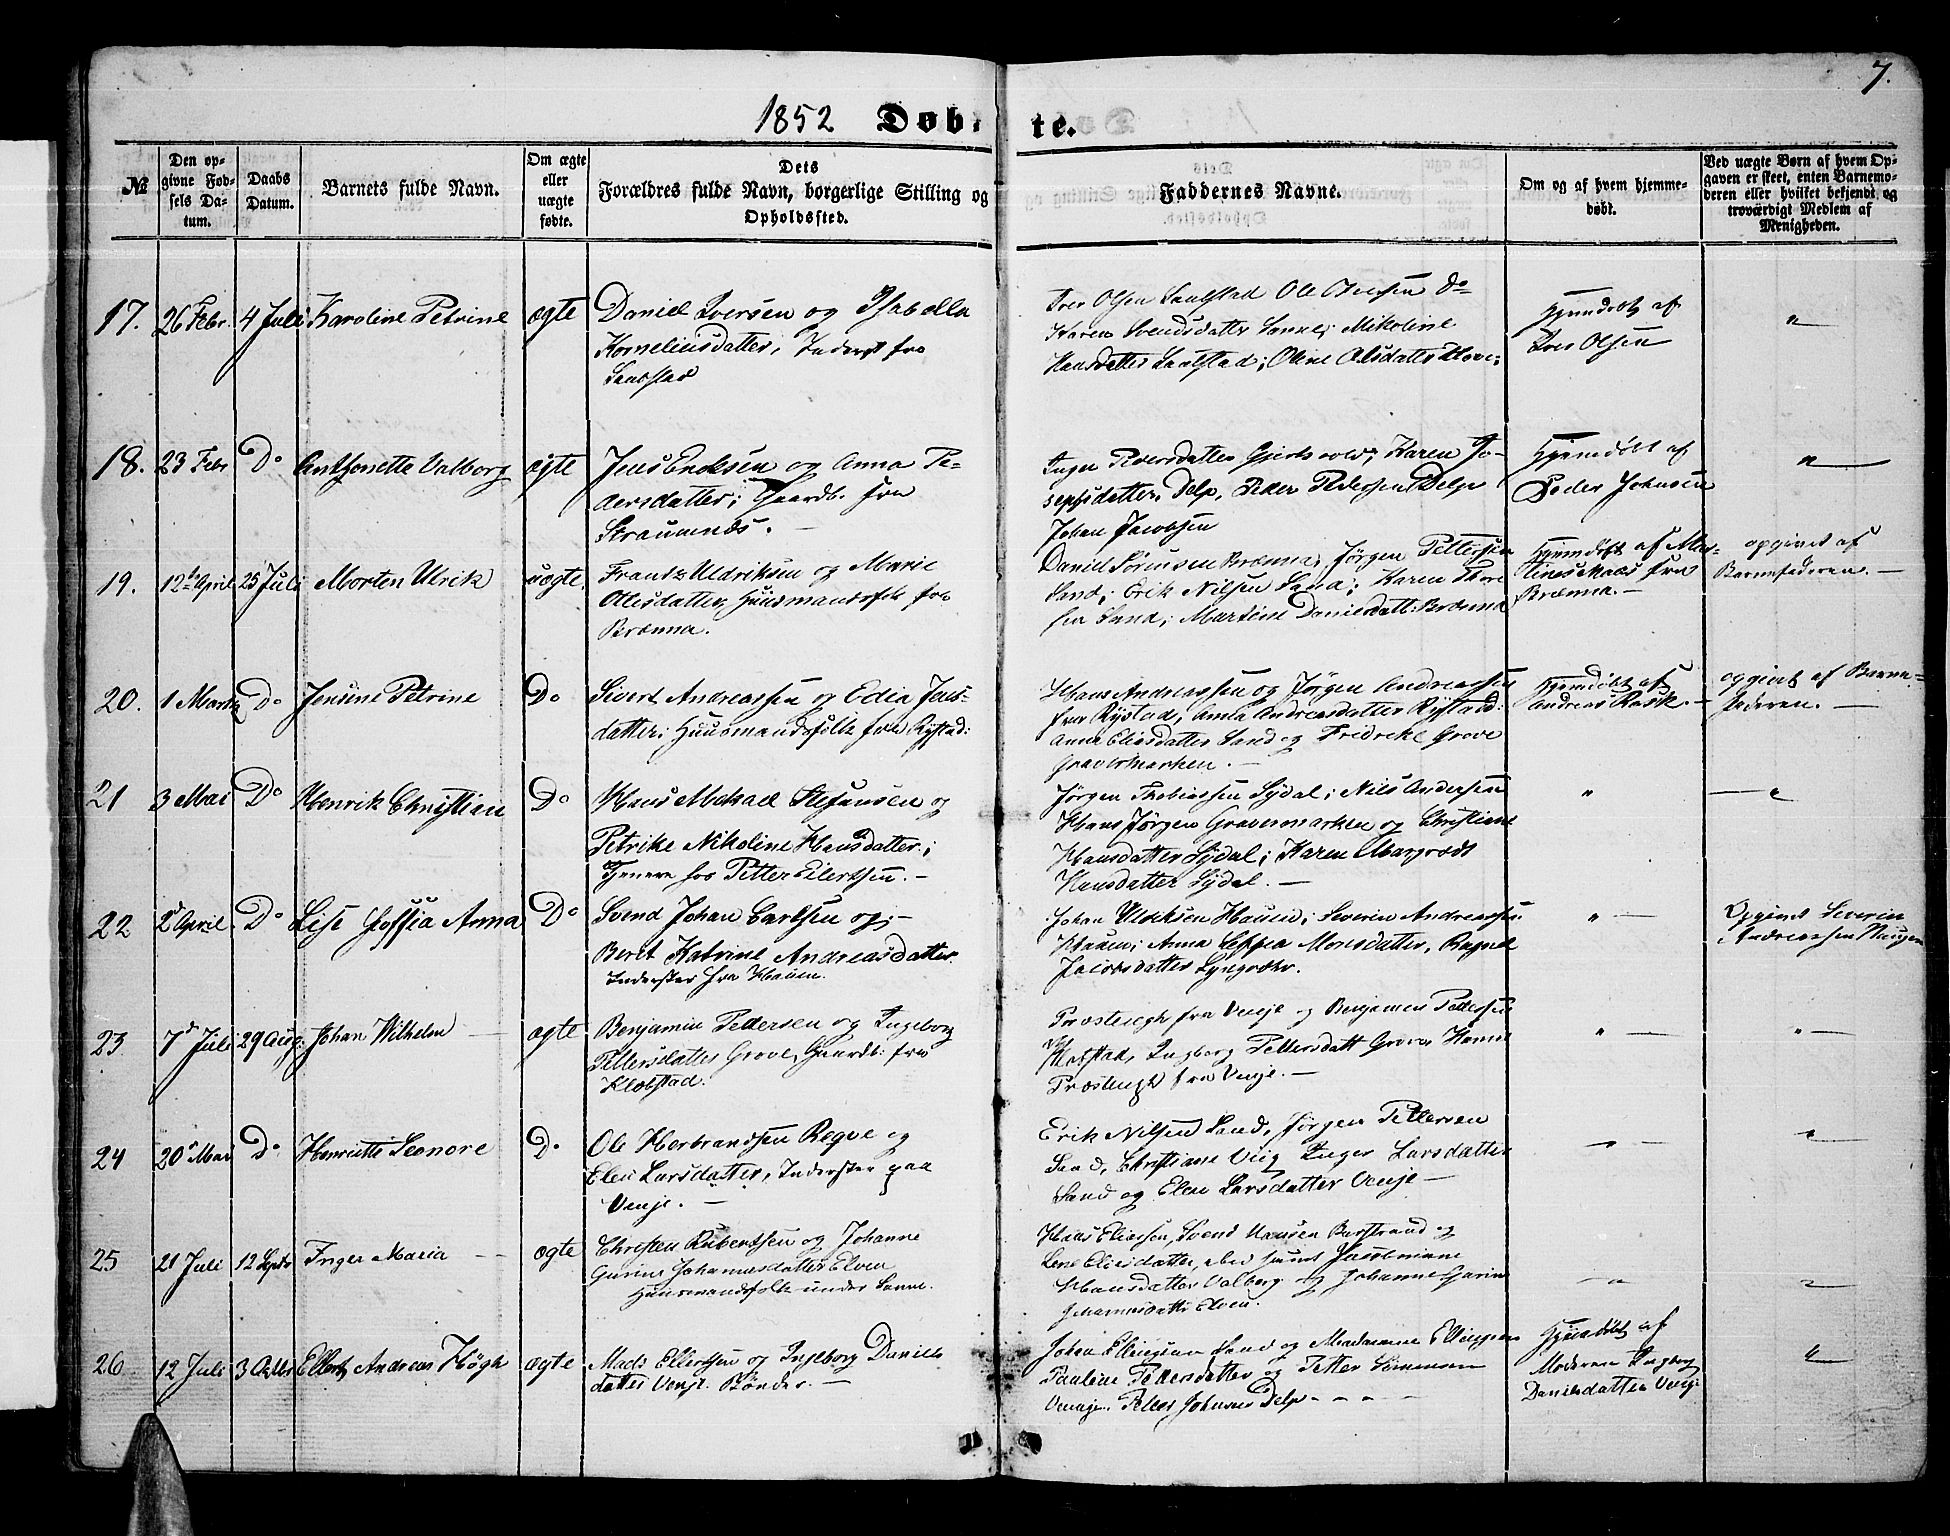 7.
1852 Døbte.
№
Den opgivne Fødsels Datum.
Daabs Datum.
Barnets fulde Navn.
Om ægte eller uægte fødte.
Dets Forældres fulde Navn, borgerlige Stilling og Opholdssted.
Faddernes Navne.
Om og af hvem hjemmedøbt.
Ved uægte Børn af hvem Opgaven er skeet, enten Barnemoderen eller hvilket bekjendt og troværdigt Medlem af Menigheden.
17. 26 Febr. 4 Juli Karoline Petrine ægte
Daniel Iversen og Isabella
Korneliusdatter, Inderst fra
Iver Olsen Ole Do
Karen Svendsdatter Nikoline
Hansdatter
af
Iver Olsen
"
18. 23 Febr Do Anthonette Valborg ægte
Jens Eriksen og Anna Pe-
dersdatter; Gaardb. fra
Straumnæs. —
Inger Pedersdatter Karen Jo-
sephsdatter Delp, Peder Pedersen Delp
Johan Jacobsen
Hjemdøbt af
Peder Johnsen
"
19. 12te April 25 Juli Morten Ulrik uægte
Frants Uldriksen og Marie
Olesdatter, Huusmandsfolk fra
Brænna.
Daniel Sørensen Brænna, Jørgen Pettersen
Sand; Erik Nilsen Sand; Karen
fra Sand; Daniesdatt. Brænna
Hjemdøbt af Mar-
tines fra
Brænna. —
opgivet af
Barnefaderen. —
20. 1 Marts Do Jensine Petrine Do
Sivert Andreassen og Edia Jens-
datter; Huusmandsfolk fra Rystad:
Hans Andreassen og Jørgen Andreassen
fra Rystad; Anna Andreasdatter Rystad
Anna Eliasdatter Sand og Fredrike Grove
Gravermarken. —
Hjemdøbt af
Andreas Rask. —
opgivet af Barne-
faderen. —
21 3 Mai Do Henrik Christian Do
Hans Mekael Stefansen og
Petrike Nikoline Hansdatter;
Tjenere hos Petter Eilertsen. —
Jørgen Thobiassen Sydal; Nils Andersen
Hans Jørgen Gravermarken og Christiane
Hansdatter Sydal; Karen Margrete
Hansdatter Sydal. —
"
"
22 2d April Do Lise Soffia Anna Do
Svend Johan Carlsen og —
Beret Katrine Andreasdatter
Inderster fra Hauen.
Johan Hauen; Severin Andreassen
Hauen; Anna Monsdatter, Ragnel
Jacobsdatter
" —
Opgivet Severin
Andreassen
23 7d Juli 29 Aug. Johan Wilhelm — ægte
Benjamin Pedersen og Ingeborg
Pettersdatter Grove, Gaardb. fra
Klebstad.
fra Venje og Benjamin Pedersen
Klebstad, Ingborg Pettersdatt Grove
fra Venje. —
" —
" —
24 20d Mai Do Henriette Leonore Do
Ole Herbrandsen og
Elen Larsdatter, Inderster paa
Venje. —
Erik Nilsen Sand, Jørgen Pettersen
Sand, Christiane Inger Larsdatter
Sand og Elen Larsdatter Venje —
" —
"
25 21 Juli 12 Septr Inger Maria — ægte
Christen Robertsen og Johanne
Gurine Johannesdatter Elven
Huusmandsfolk under
Elias Eliassen, Svend Hansen og
Lene Eliasdatter,
Hansdatter Valberg og Johanne Gurine
Johannesdatter Elven.
— "
"
26 12 Juli 3 Octbr Ellert Andreas Høgh ægte
Mads Ellertsen og Ingeborg Daniels
datter Venje. Bønder. —
Johan Ellingsen Sand og Madamme Ellingsen
Pauline Pedersdatter og Petter
Venje, Peder Johnsen Delp - - - -
Hjemdøbt af
Moderen Ingborg
Danielsdatter Venje
"